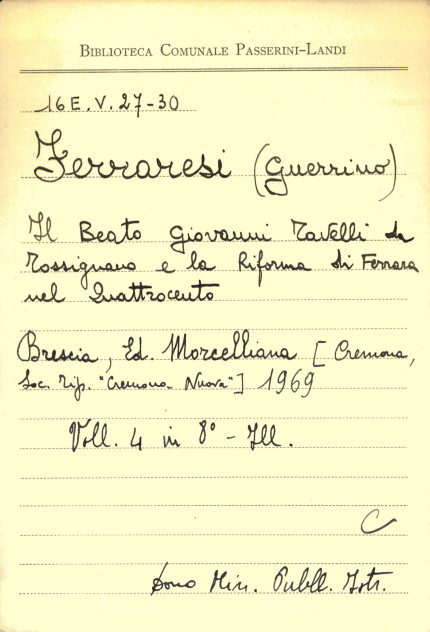 BIBLIOTECA COMUNALE PASSERINI-LANDI
16E.V.27-30
Ferraresi (Guerrino)
Il Beato Giovanni Tavelli da
Tossignano e la Riforma di Ferrara
nel Quattrocento
Brescia, Ed. Morcelliana [Cremona,
Soc. Tip. "Cremona Nuova"] 1969
Voll. 4 in 8° - Ill.
C
Dono Min. Pubbl. Istr.